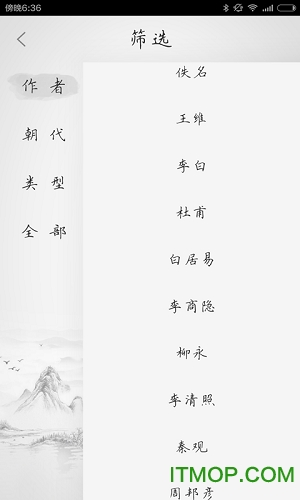 傍晚6:36
筛选
作者
朝代
类型
全部
佚名
王维
李白
杜甫
白居易
李商隐
柳永
李清照
秦观
周邦彦
ITMOP.COM